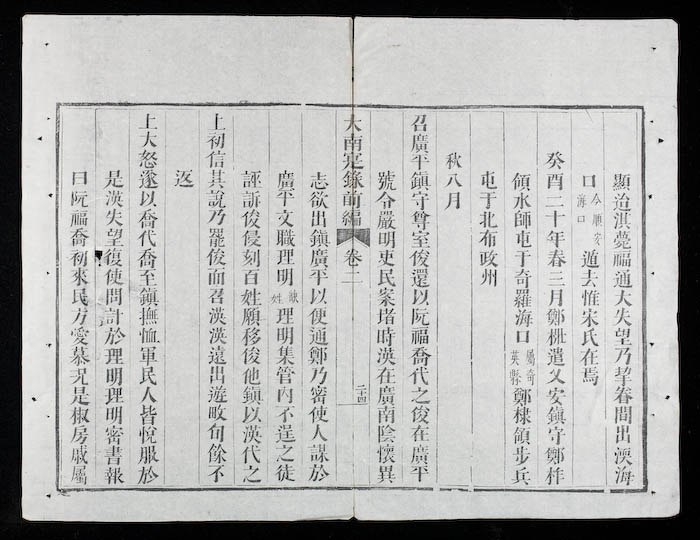 顯迨淇薨福通大失望乃挈眷閭出㴜海
口今順安海口遁去惟宋氏在焉
癸酉二十年春三月鄭梉遣乂安鎮守鄭柞
領水師屯于奇羅海口屬奇英縣鄭棣領步兵
屯于北布政州
秋八月
召廣平鎮守尊室俊還以阮福喬代之俊在廣平
號令嚴明吏民案堵時渶在廣南陰懷異
大南寔錄前編 卷二 二十四
志欲出鎮廣平以便通鄭乃密使人謀於
廣平文職理明缺姓理明集管內不逞之徒
誣訴俊侵刻百姓願移俊他鎮以渶代之
上初信其說乃罷俊而召渶渶遠出遊畋旬餘不
返
上大怒遂以喬代喬至鎮撫恤軍民人皆悅服於
是渶失望復使問計於理明理明密書報
曰阮福喬初來民方愛慕況是椒房戚屬